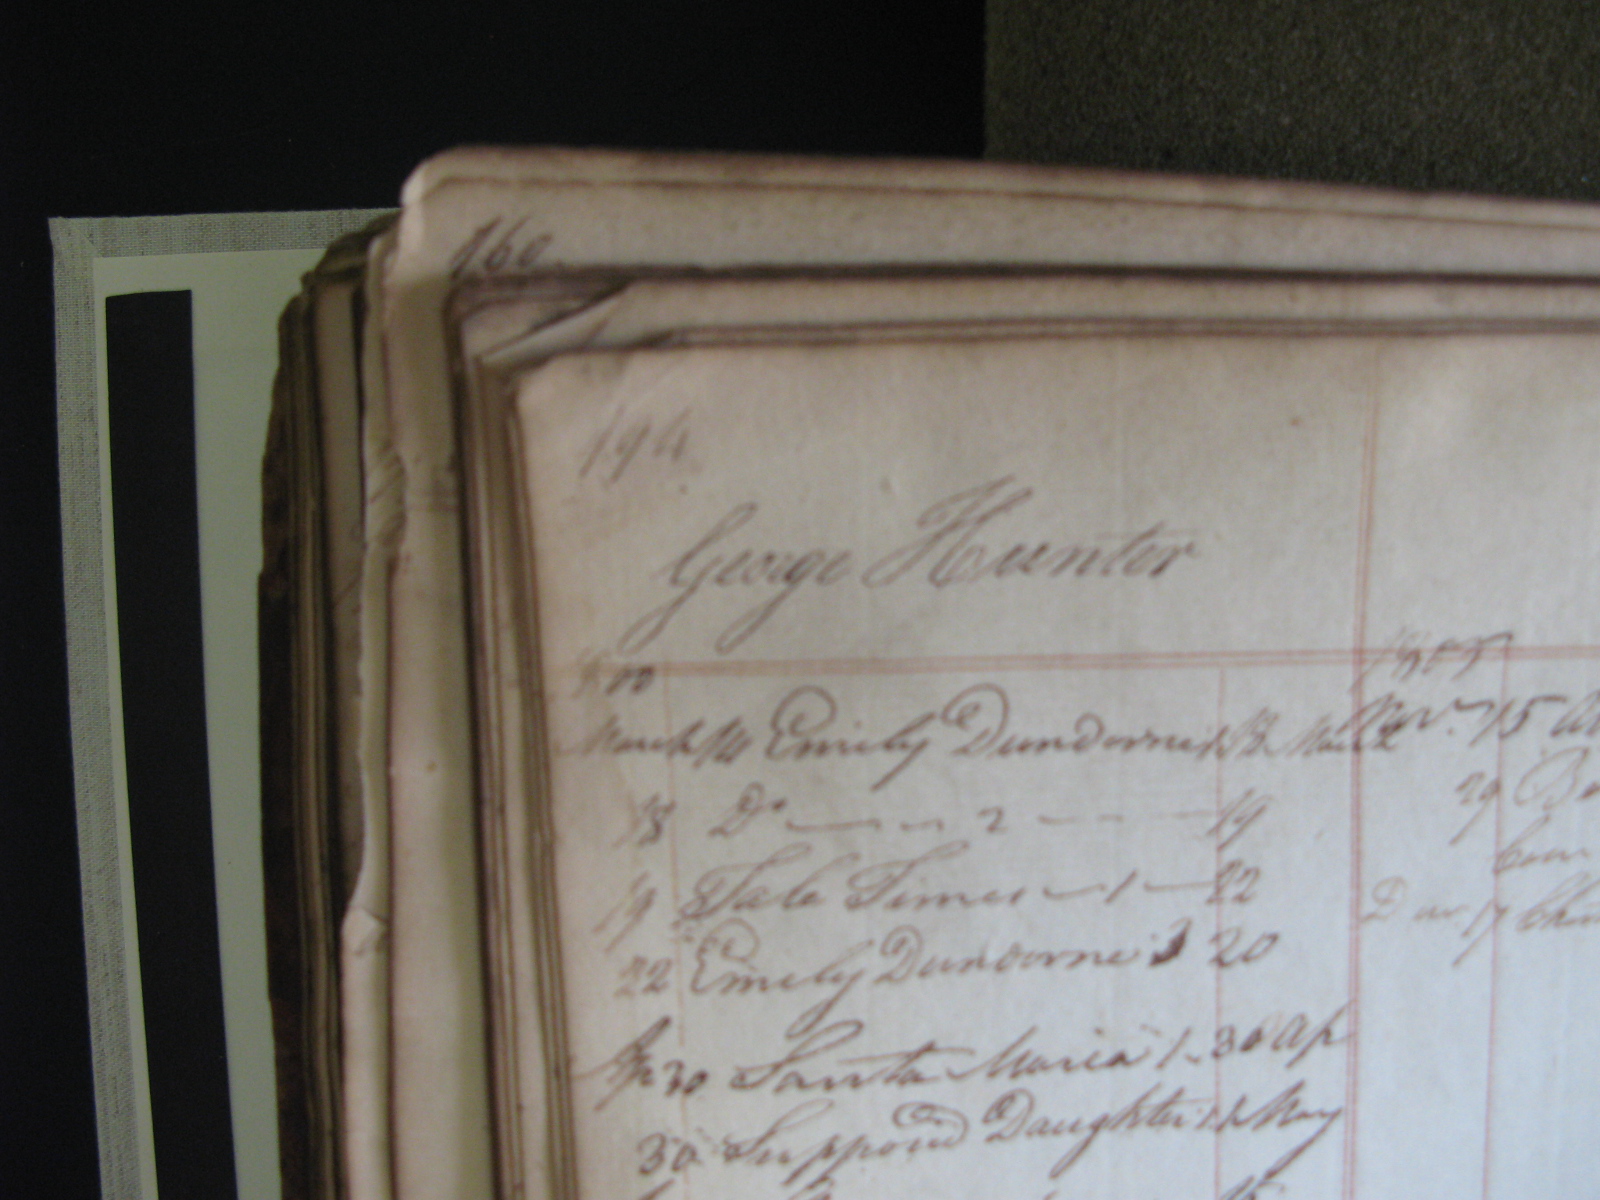 160
194
George Hunter
1800
March 14 Emily Dundorne 1 18 March
18 Do 2 19
19 Tale Times 1 22
22 Emily Dundorne 3 20
Ap 30 Santa Maria 1 30 Ap
30 Supposd Daughter 1 2 May
15
Novr. 15
29
Com
17